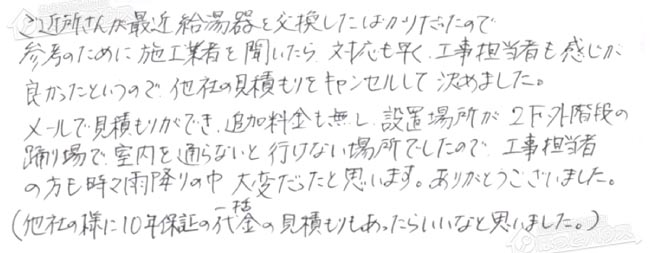 ご近所さんが最近給湯器を交換したばかりだったので
参考のために施工業者を聞いたら、対応も早く、工事担当者も感じが
良かったというので、他社の見積もりをキャンセルして決めました。
メールで見積もりができ、追加料金も無し、設置場所が2F外階段の
踊り場で、室内を通らないと行けない場所でしたので、工事担当者
の方も時々雨降りの中、大変だったと思います。ありがとうございました。
(他社の様に10年保証の一括代金の見積もりもあったらいいなと思いました。)